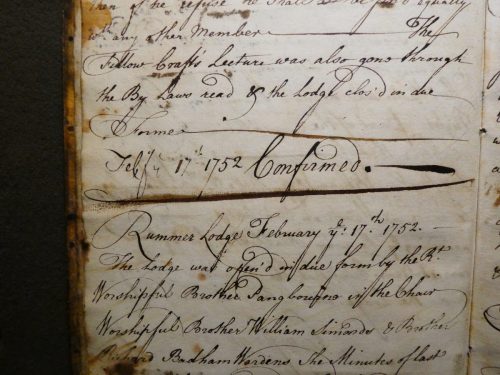 then if he refuse he Shall be equally
wth any other Member The
Fellow Crafts Lecture was also gone through
the By Laws read & the Lodge clos'd in due
Forme
Feby ye 17th 1752 Confirmed.
Rummer Lodge February ye: 17.th 1752.
The Lodge was open'd in due form by the Rt.
Worshipful Brother Pangbourne in the Chair
Worshipful Brother William Simonds & Brother
Richard Badham Wardens The Minutes of last